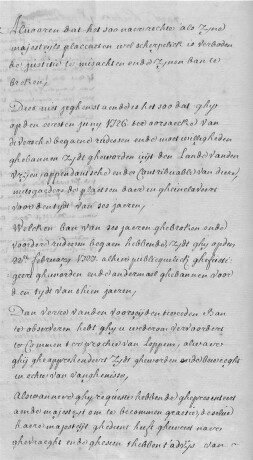 Alvooren dat het soo naer rechte als Zyne
majesteyts placcaeten wel scherpelick is verboden
de justitie te misachten ende Zynen ban te
breken,
Dat niet jeghenstaende dies het soo dat ghy
op den eersten juny 1726 ter oorsaecke van
diversche begaene rudessen ende moetwilligheden
ghebannen Zydt gheworden uyt den Lande vanden
vryen, appendantsche ende Contribuable van diere,
mitsgaders de plaetsen daer in gheenclaveert
voor den tydt van ses jaeren,
Welcken ban van ses jaeren ghebroken ende
voorder rudessen begaen hebbende, Zydt ghy op den
februarij 1727 alhier publiquelick ghefusti-
geert gheworden ende andermael ghebannen voor
den tydt van thien jaeren,
Dan verre vanden voorseyden tweeden ban
te observeren hebt ghy u wederom vervoordert
te Commen ter prochie van Loppem, alwaer
ghy gheapprehendeert Zydt gheworden ende
in echte van vanghenisse,
Alswanneer ghy requeste hebbende ghepresenteert
aende majesteyt om te becommen gratie, de selve
haere majesteyt ghedient heeft gheweest naer
ghevraeght ende ghesien t'hebben t'advijs van